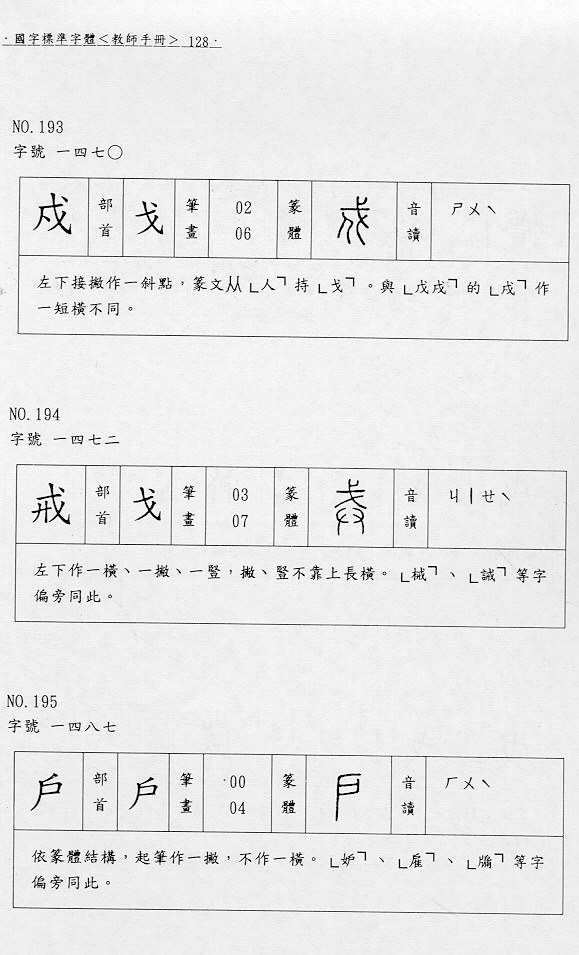 ·國字標準字體＜教師手冊＞ 128·
NO.193
字號 一四七〇
戍 部首 戈 筆畫 02 06 篆體 音讀 ㄕㄨˋ
左下接撇作一斜點，篆文从「人」持「戈」。與「戊戌」的「戌」作
一短橫不同。
NO.194
字號 一四七二
戒 部首 戈 筆畫 03 07 篆體 音讀 ㄐㄧㄝˋ
左下作一橫、一撇、一豎，撇、豎不靠上長橫。「械」、「誡」等字
偏旁同此。
NO.195
字號 一四八七
戶 部首 戶 筆畫 00 04 篆體 音讀 ㄏㄨˋ
依篆體結構，起筆作一撇，不作一橫。「妒」、「雇」、「牖」等字
偏旁同此。